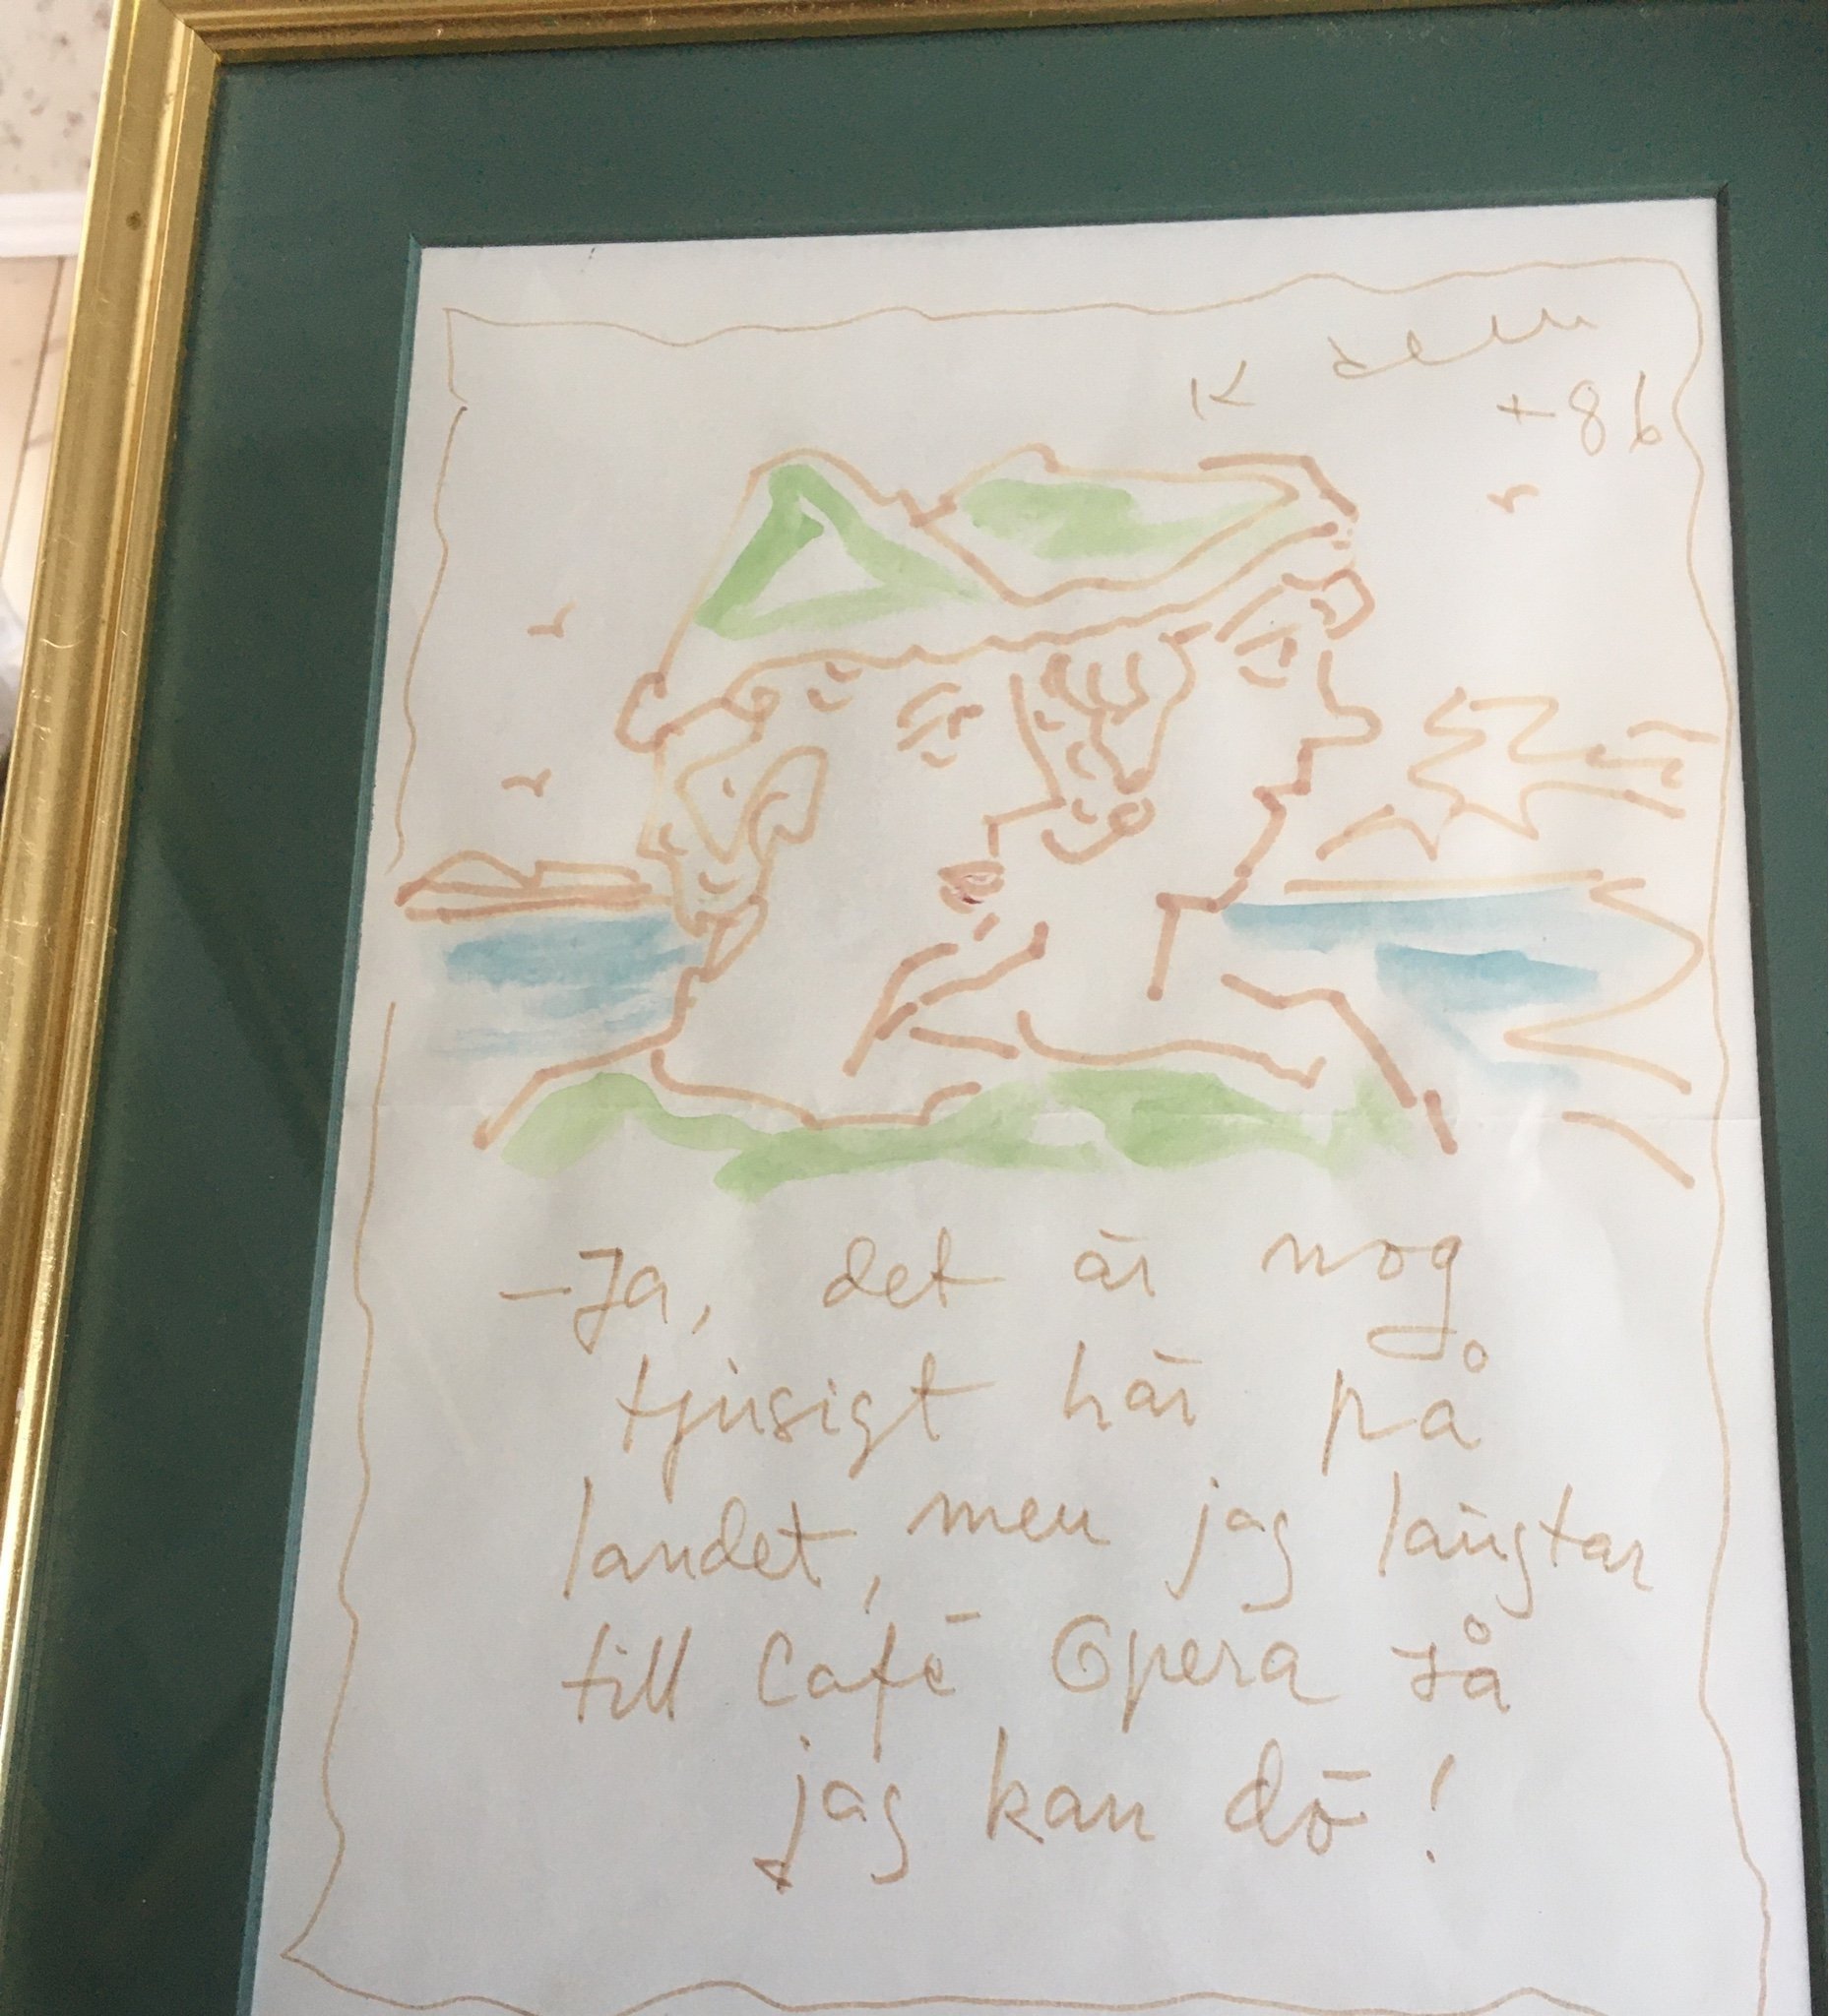 +86
- Ja, det är nog
tjusigt här på
landet, men jag längtar
till Café Opera så
jag kan dö!